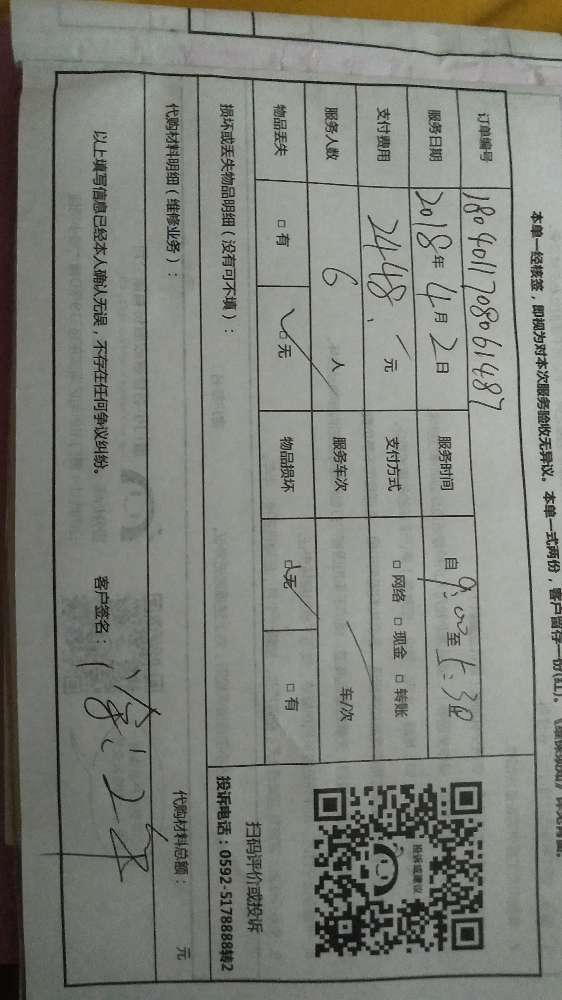 本单一经核签，即视为对本次服务验收无异议。本单一式两份，客户留存一份(红)。
订单编号 1804011708061487
服务日期 2018年4月2日 服务时间 自9:00至5:30
支付费用 2448、元 支付方式 □ 网络 □ 现金 □ 转账
服务人数 6人 服务车次 车/次
物品丢失 □ 有 □ 无 物品损坏 □ 无 □ 有
损坏或丢失物品明细（没有可不填）：
扫码评价或投诉
投诉电话：0592-5178888转2
投诉或建议
代购材料明细（维修业务）： 代购材料总额： 元
以上填写信息已经本人确认无误，不存在任何争议纠纷。 客户签名：